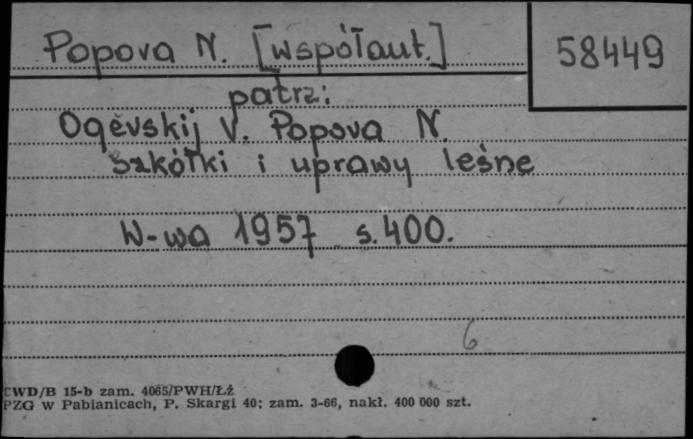 Popova N. [współaut.]
58449
patrz:
Ogěvskij V. Popova N.
Szkółki i uprawy leśne
W-wa 1957 s. 400.
6
CWD/B 15-b zam. 4065/PWH/Łż
PZG w Pabianicach, P. Skargi 40; zam. 3-66, nakł. 400 000 szt.